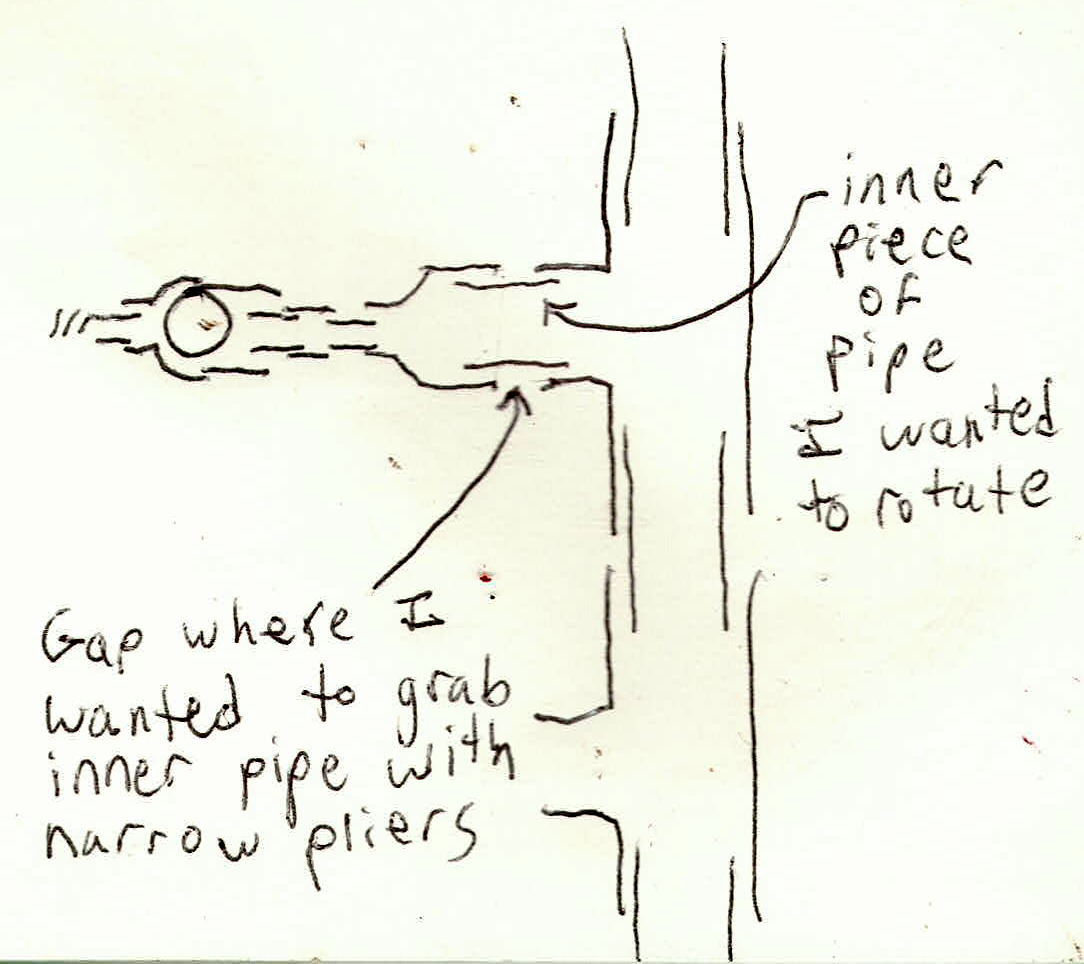 inner
piece
of
pipe
I wanted
to rotate
Gap where I
wanted to grab
inner pipe with
narrow pliers